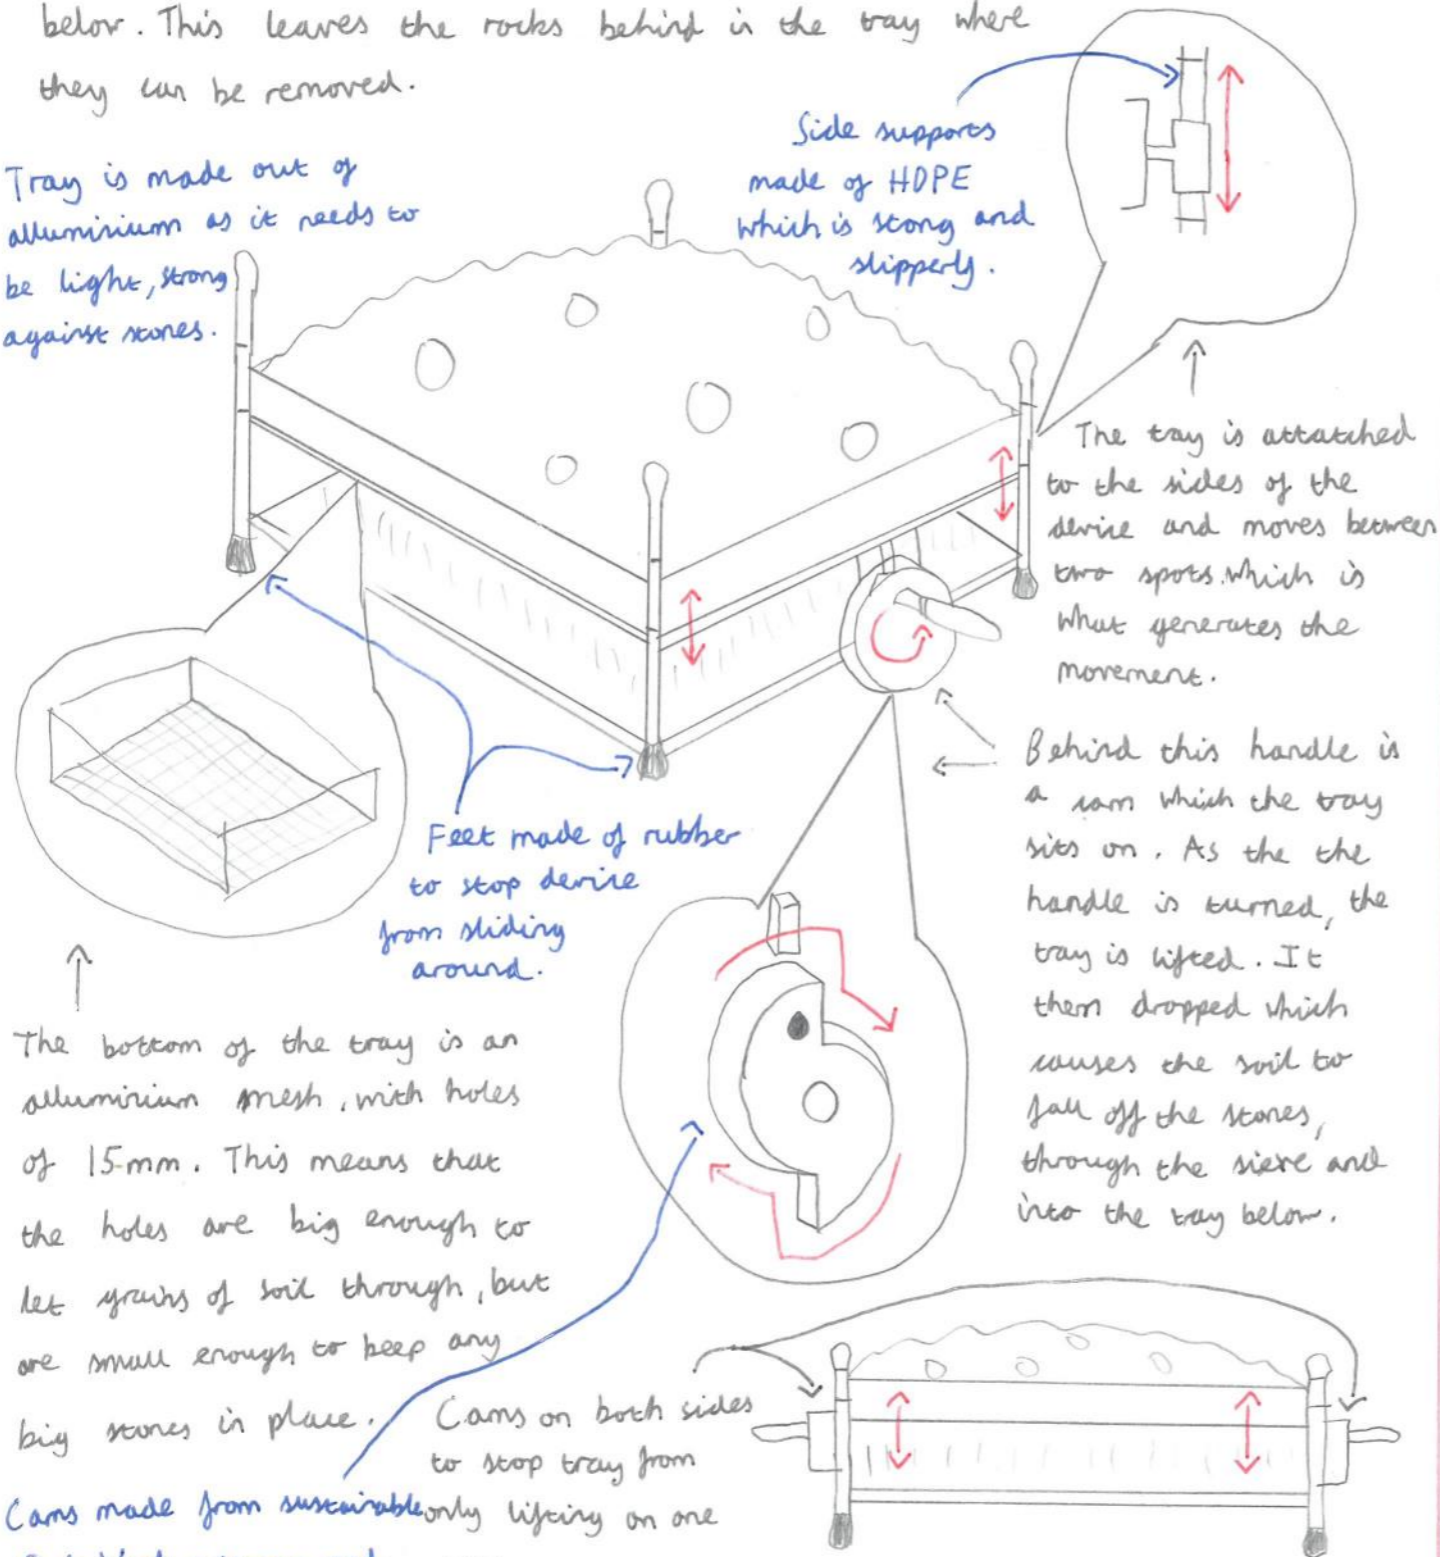 below. This leaves the rocks behind in the tray where
they can be removed.
Tray is made out of
alluminium as it needs to
be light, strong
against stones.
Side supports
made of HDPE
which is stong and
slippery.
The tray is attatched
to the sides of the
device and moves between
two spots which is
what generates the
movement.
Behind this handle is
a cam which the tray
sits on. As the the
handle is turned, the
tray is lifted. It
then dropped which
causes the soil to
fall off the stones,
through the sieve and
into the tray below.
Feet made of rubber
to stop device
from sliding
around.
The bottom of the tray is an
alluminium mesh, with holes
of 15mm. This means that
the holes are big enough to
let grains of soil through, but
are small enough to keep any
big stones in place.
Cams on both sides
to stop tray from
only lifting on one
Cams made from sustainable